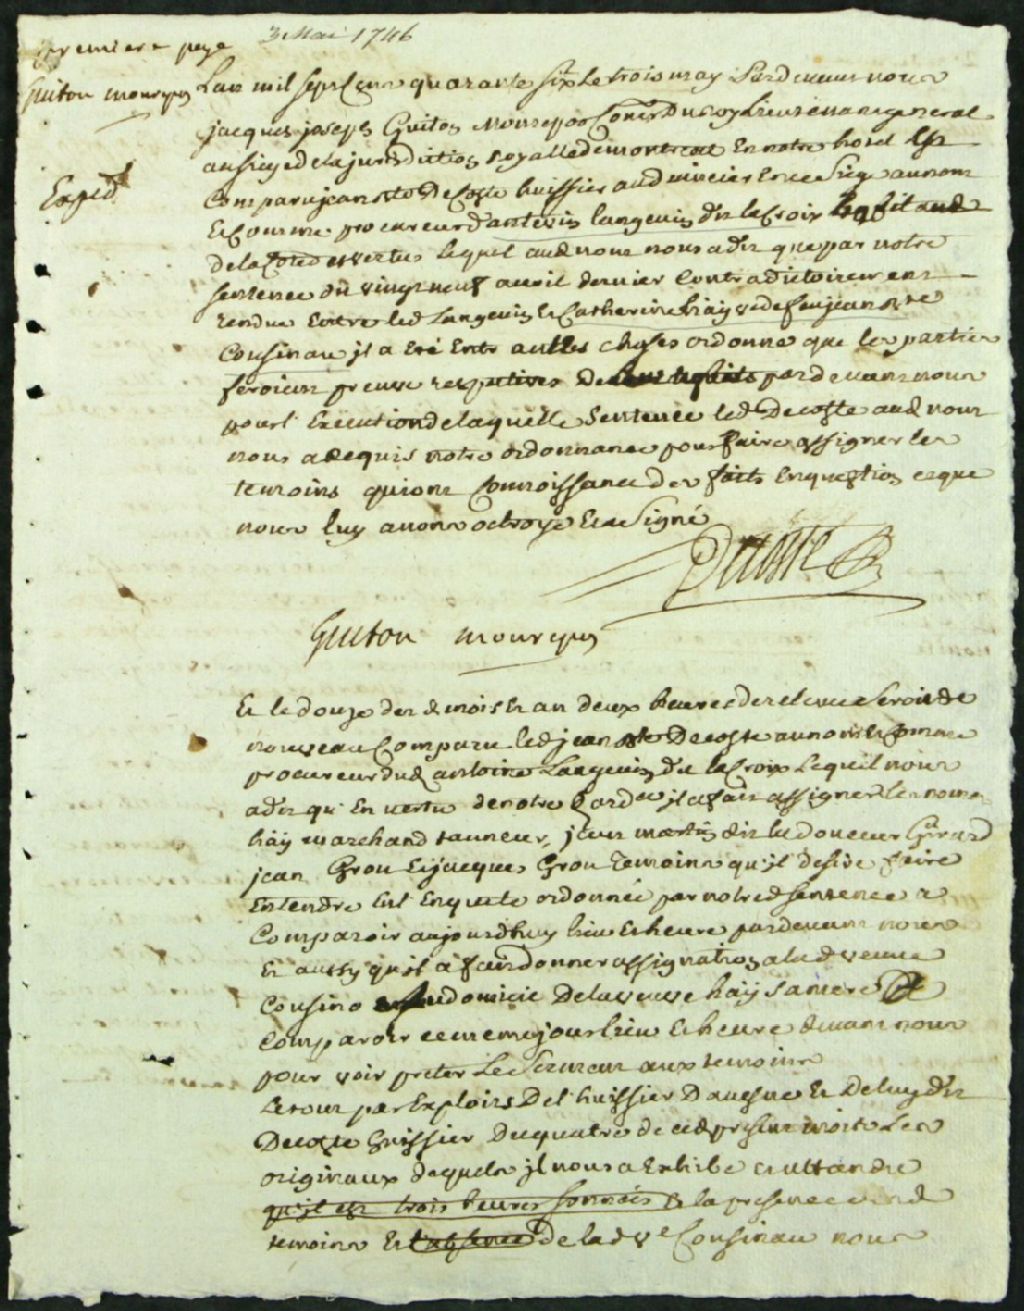 premiere page
3 Mai 1746
Guiton monrepos
Exped
Lan mil sept Cent quarante Six Le trois may Pardevant nous
jacques joseph Guiton Monrepos Conser Du Roy Lieutenant general
au siege de la jurisdiction royalle de montreal En notre hotel Est
Comparu jean Bte Decoste huissier audiancier En ce Siege au nom
Et Comme procureur d'antoine langevin dit laCroix habitant
de la Coted es vertus lequel aud nom nous a dit que par notre
sentence du vingt neuf avril dernier Contradictoirement
rendue Entre led Langevin Et Catherine häy ve de feu jean Bte
Cousinau jl a Eté Entre autres choses ordonné que les parties
feroient preuve respectives de leurs faits pardevant nous
pour l'Execution de laquelle Sentence led Decoste aud nom
nous a requis notre ordonnance pour faire assigner les
temoins qui ont Connoissance des faits En question ce que
nous luy avons octroyé Et a Signé
Decoste
Guiton monrepos
Et le douze des d mois Et an deux heures de relevée Seroit de
nouveau Comparu led jean Bte Decoste au nom Et Comme
procureur dud antoine Langevin dit laCroix Lequel nous
a dit qu'En vertu de notre d ordce jl a fait assigner les nommés
häy marchand tanneur, jean martin dit ladouceur Girard
jean Grou Et jacques Grou Temoins qu'jl desire faire
Entendre En l'Enquete ordonnée par notred Sentence a
Comparoir aujourdhuy lieu Et heure pardevant nous
Et aussy qu'jl a fait donner assignation a lad veuve
Cousino au domicile De la veuve häy sa mere a
Comparoir ce meme jour lieu Et heure devant nous
pour voir preter Le Serment aux temoins
Le tout par Exploits De l'huissier Daugue Et De luy dit
Decoste huissier Du quatre de ced present mois Les
originaux desquels jl nous a Exhibé Et attandre
qu'jl est trois heures sonnées & la presence desd
temoins Et l'absence de lad ve Cousinau nous